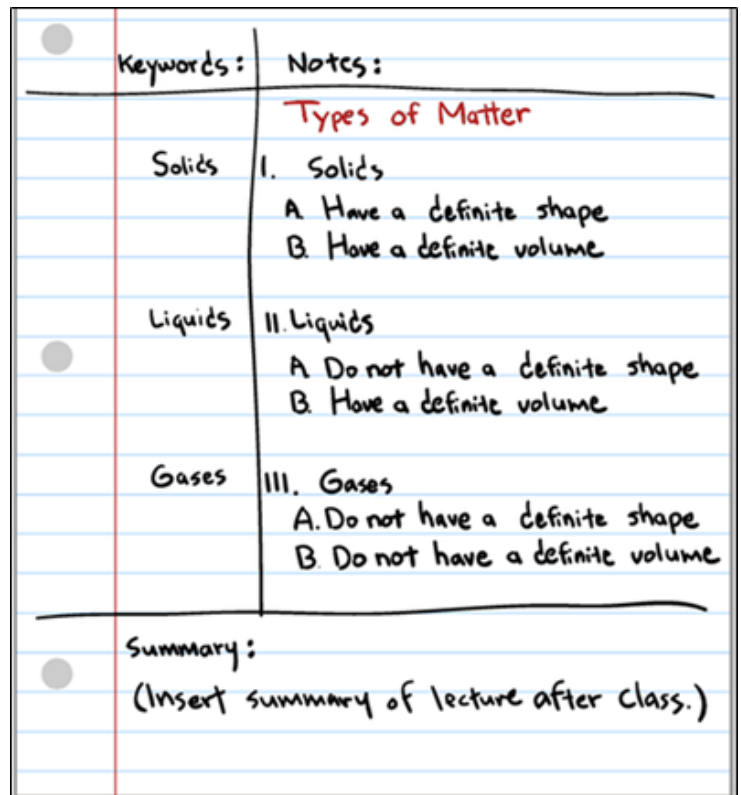 Keywords: Notes:
Types of Matter
Solids I. Solids
A. Have a definite shape
B. Have a definite volume
Liquids II. Liquids
A. Do not have a definite shape
B. Have a definite volume
Gases III. Gases
A. Do not have a definite shape
B. Do not have a definite volume
Summary:
(Insert summary of lecture after class.)